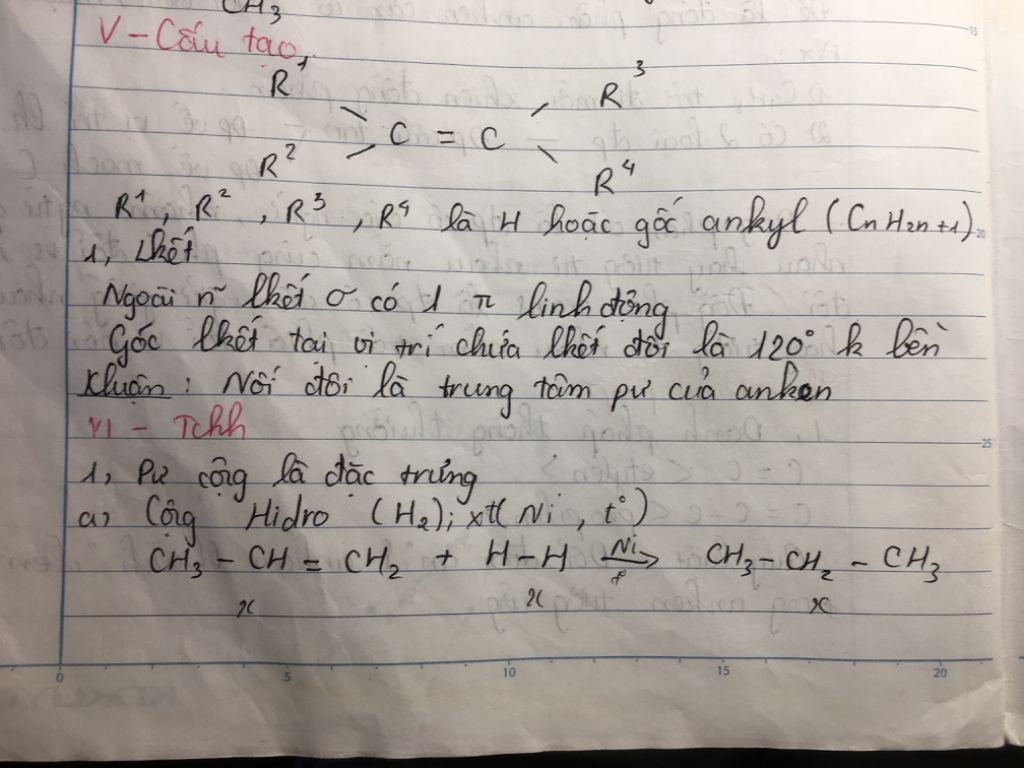 CH3
V - Cấu tạo
R1 R3
C = C
R2 R4
R1, R2, R3, R4 là H hoặc gốc ankyl (CnH2n+1)
1, Lkết
Ngoài n~ lkết σ có 1 π linh động
Góc lkết tại vị trí chứa lkết đôi là 120° k bền
Kluận: Nối đôi là trung tâm pư của anken
VI - Tchh
1, Pư cộng là đặc trưng
a, Cộng Hidro (H2); xt (Ni, t°)
CH3 - CH = CH2 + H - H Ni t° → CH3 - CH2 - CH3
x x x
0 5 10 15 20
15
20
25